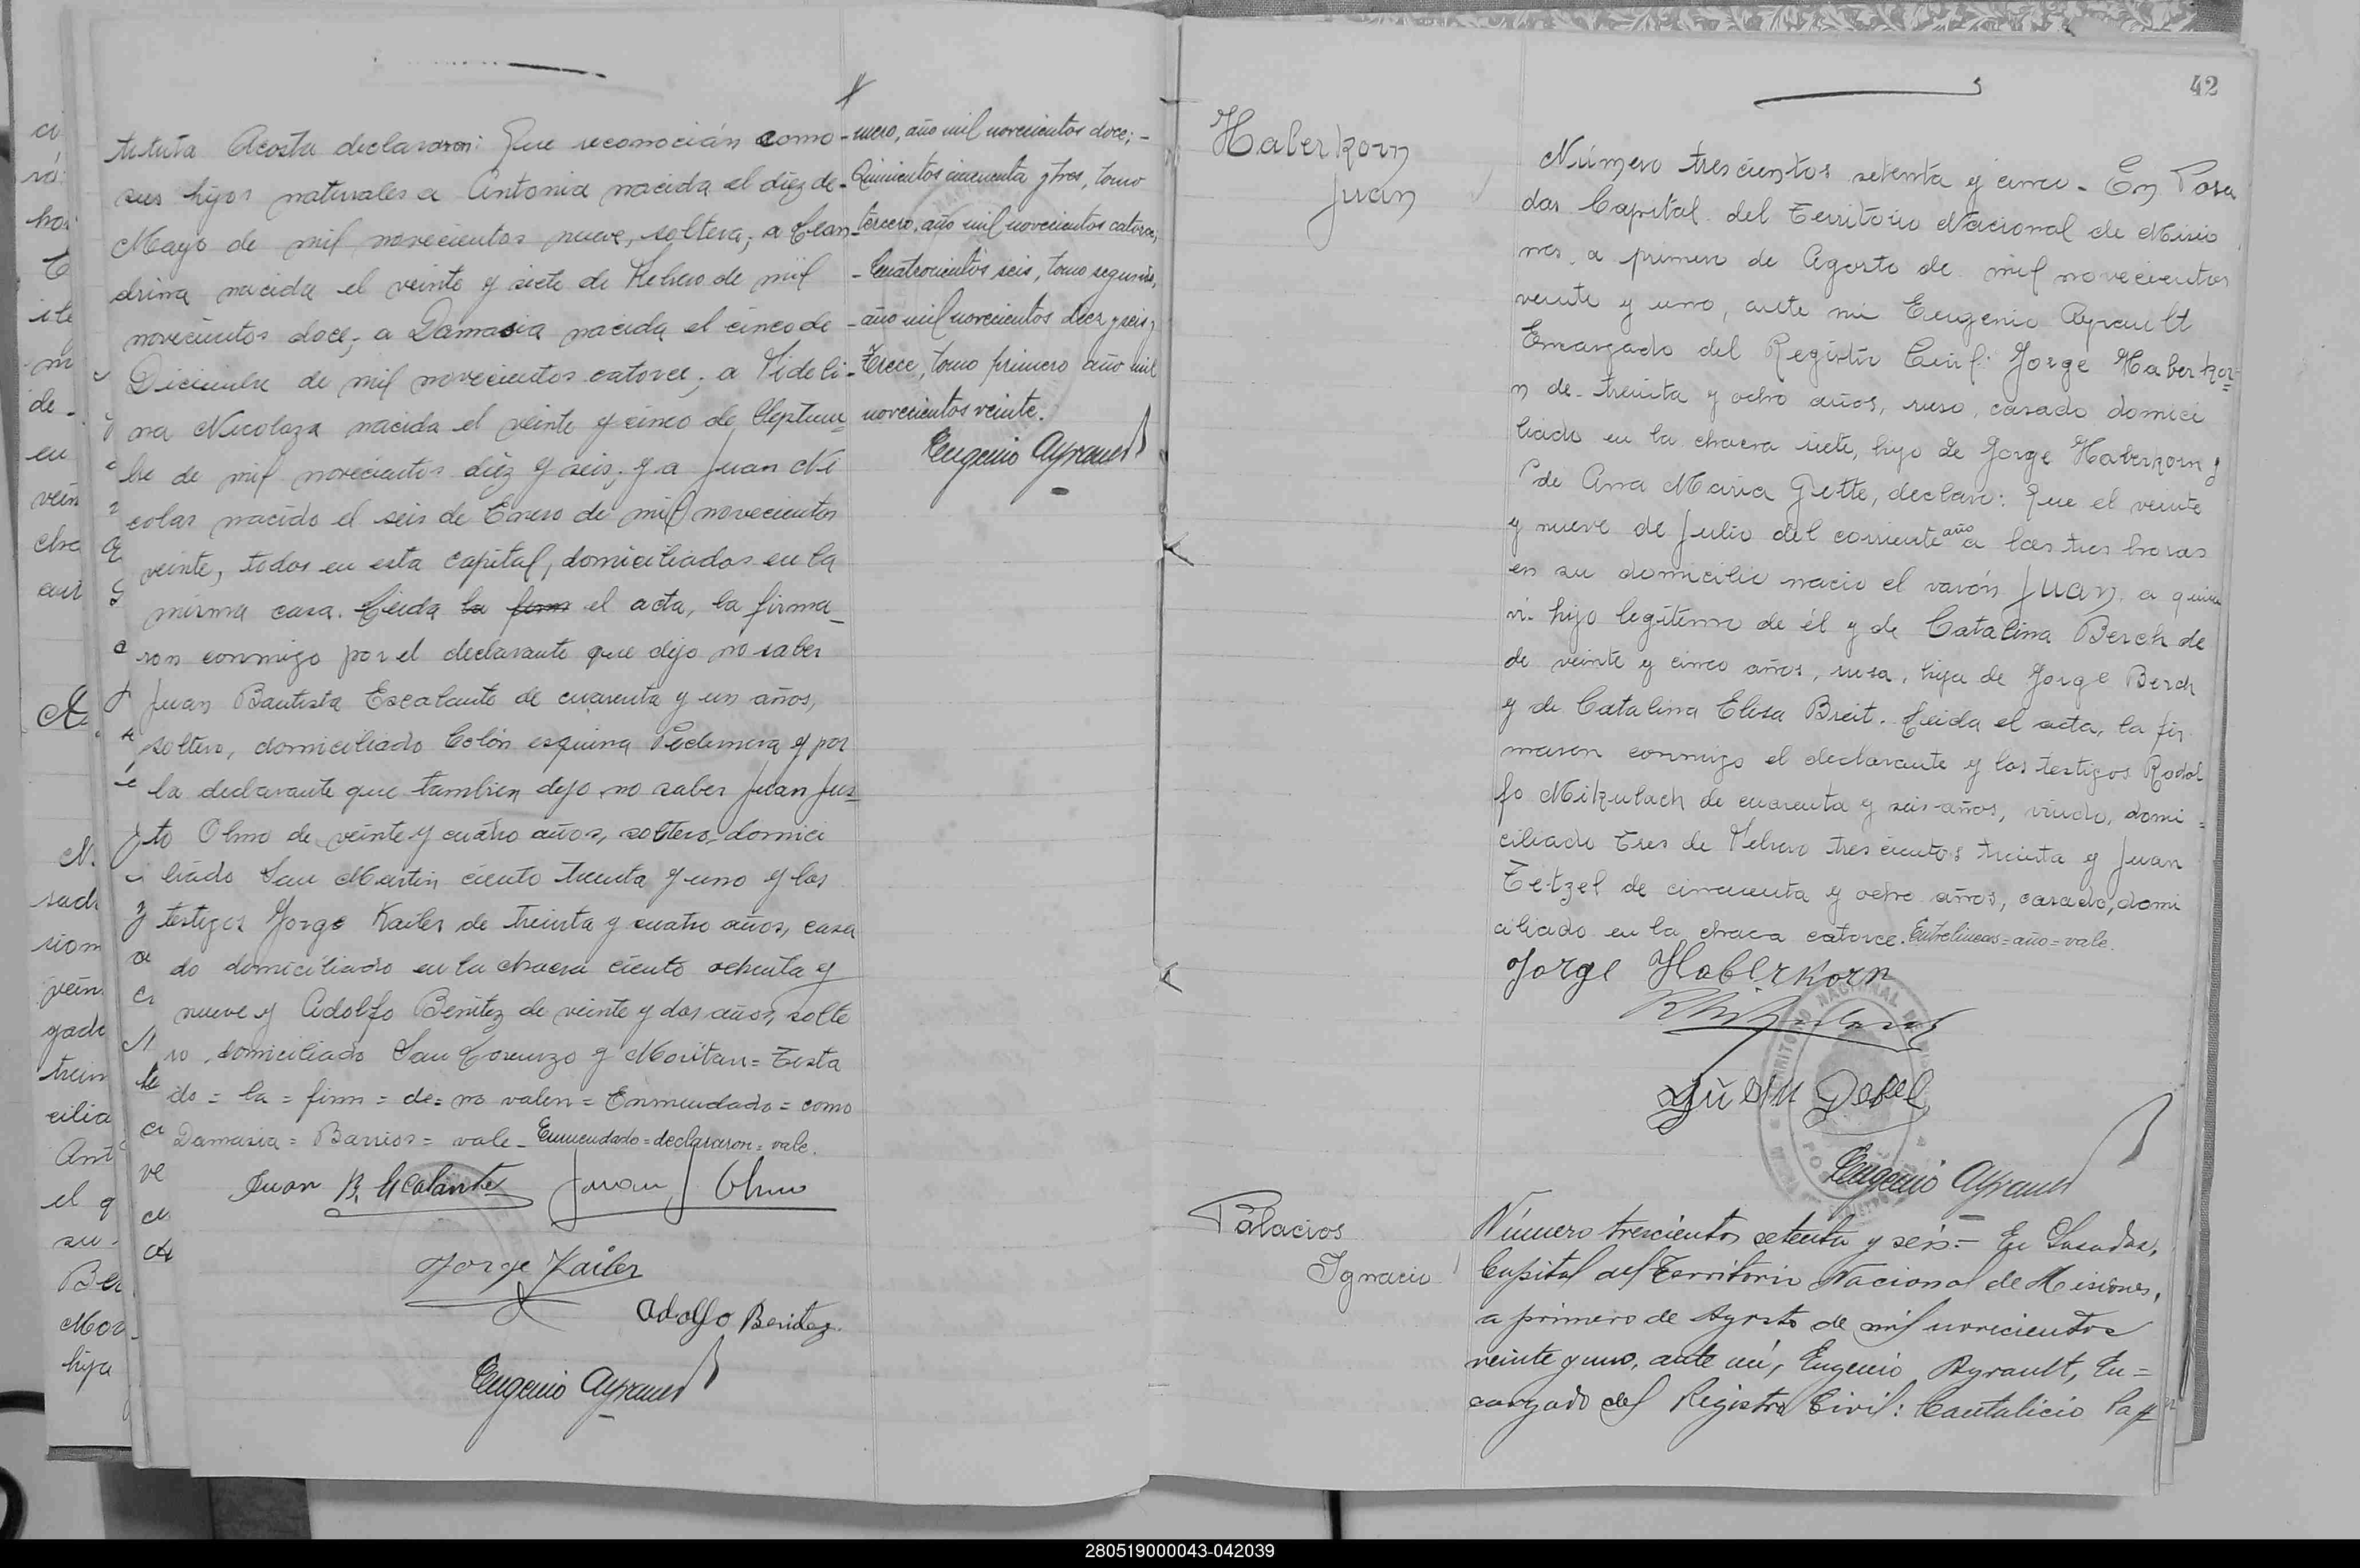 tituta Acosta declararon: Que reconocían como
sus hijos naturales a Antonia nacida el diez de
Mayo de mil novecientos nueve, soltera; a Clean
drina nacida el veinte y siete de Febrero de mil
novecientos doce; a Damasia nacida el cinco de
Diciembre de mil novecientos catorce; a Fideli
na Nicolaza nacida el veinte y cinco de Septiem
bre de mil novecientos diez y seis; y a Juan Ni
colas nacido el seis de Enero de mil novecientos
veinte, todos en esta capital, domiciliados en la
misma casa. Leida la firm el acta, la firma_
ron conmigo por el declarante que dijo no saber
Juan Bautista Escalante de cuarenta y un años,
soltero, domiciliado Colón esquina Pedernera y por
la declarante que tambien dijo no saber Juan Jus
to Olmo de veinte y cuatro años, soltero, domici
liado San Martin ciento treinta y uno y los
testigos Jorge Kailer de treinta y cuatro años, casa
do domiciliado en la chacra ciento ochenta y
nueve y Adolfo Benitez de veinte y dos años, solte
ro, domiciliado San Lorenzo y Moritan = Testa
do = la = firm = de = no valen = Enmendado = como
Damasia = Barrios = vale - Enmendado = declararon = vale.
Juan B. Escalante Juan J Olmo
Jorge Kailer
Adolfo Benitez.
Eugenio Ayrault
mero, año mil novecientos doce; -
Quinientos cincuenta y tres, tomo
tercero, año mil novecientos catorce,
- Cuatrocientos seis, tomo segundo,
- año mil novecientos diez y seis y
Trece, tomo primero año mil
novecientos veinte.
Eugenio Ayrault
42
Haberkorn
Juan
Número trescientos setenta y cinco - En Posa
das Capital del Territorio Nacional de Misio
nes, a primero de Agosto de mil novecientos
veinte y uno, ante mi Eugenio Ayrault
Encargado del Registro Civil: Jorge Haberkor=
n de treinta y ocho años, ruso, casado domici
liado en la chacra siete, hijo de Jorge Haberkorn y
de Ana Maria Gette, declaró: Que el veinte
y nueve de Julio del corriente año a las tres horas
en su domicilio nacio el varón Juan, a quien
vi. hijo legítimo de él y de Catalina Berch de
de veinte y cinco años, rusa, hija de Jorge Berch
y de Catalina Elisa Breit. Leida el acta, la fir
maron conmigo el declarante y los testigos Rodol
fo Mikulach de cuarenta y seis años, viudo, domi=
ciliado Tres de Febrero trescientos treinta y Juan
Tetzel de cincuenta y ocho años, casado, domi
ciliado en la chacra catorce. Entrelineas = año = vale.
Jorge Haberkorn
Eugenio Ayrault
Palacios
Ignacio
Número trescientos setenta y seis.- En Posadas,
Capital del Territorio Nacional de Misiones,
a primero de Agosto de mil novecientos
veinte y uno, ante mí, Eugenio Ayrault, En=
cargado del Registro Civil: Cantalicio Pa
280519000043-042039